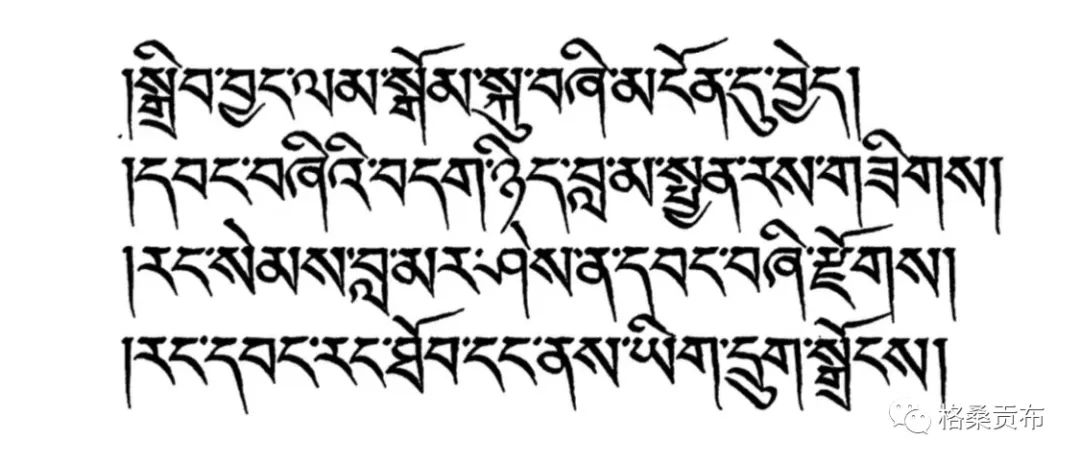 །སྒྲིབ་བྱང་ལམ་སྒོམ་སྐུ་བཞི་མངོན་དུ་བྱེད།
།དབང་བཞིའི་བདག་ཉིད་བླ་མ་སྤྱན་རས་གཟིགས།
།རང་སེམས་བླ་མར་ཤེས་ན་དབང་བཞི་རྫོགས།
།རང་དབང་རང་ཐོབ་ངང་ནས་ཡིག་དྲུག་སྒྲོངས།
格桑贡布